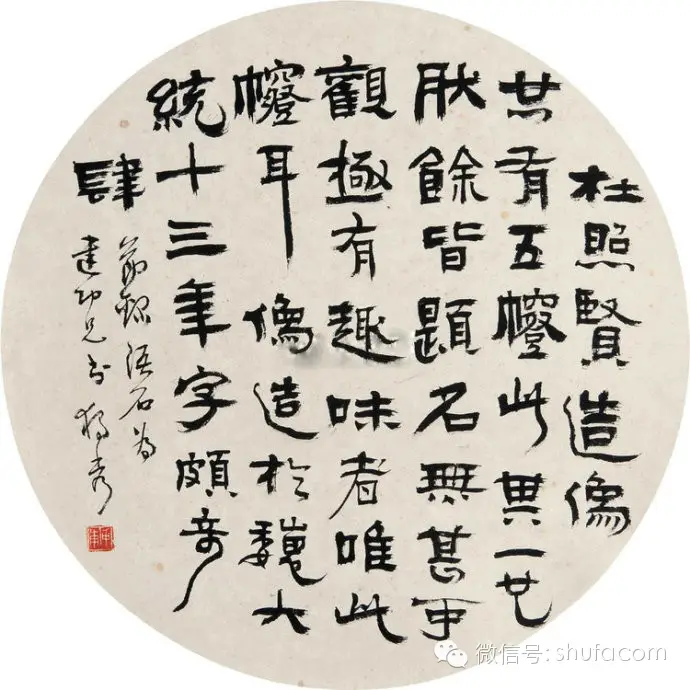 杜照賢造像
共有五此其一也
肰餘皆題名無甚可
觀極有趣味者唯此
耳像造於魏大
統十三年字頗奇
肆
節録語石為
建功兄書 獨秀
微信号: shufacom